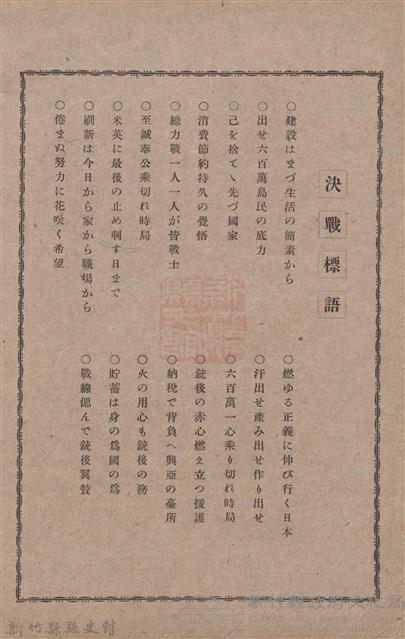 決戰標語
○建設はまづ生活の簡素から
○出せ六百萬島民の底力
○己を捨てゝ先づ國家
○消費節約持久の覺悟
○總力戰一人一人が皆戰士
○至誠奉公乘切れ時局
○米英に最後の止め刺す日まで
○刷新は今日から家から職場から
○倦まぬ努力に花咲く希望
○燃ゆる正義に伸び行く日本
○汗出せ產み出せ作り出せ
○六百萬一心乘り切れ時局
○銃後の赤心燃え立つ援護
○納稅で背負へ興亞の臺所
○火の用心も銃後の務
○貯蓄は身の爲國の爲
○戰線偲んで銃後翼贊
新竹縣縣史館